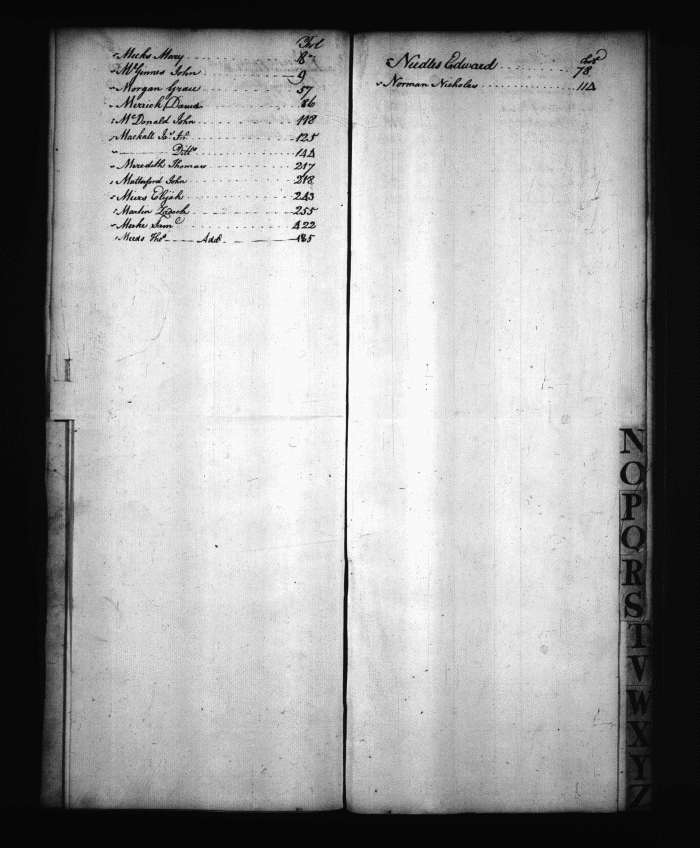 Fol
Meeks Mary 8
McGinnes John 9
Morgan Grace 57
Merrick David 86
McDonald John 118
Mackall Jas Jr. 125
Ditto 144
Meredith Thomas 217
Matterford John 218
Mires Elijah 243
Martin Zadock 255
Meeke Saml 422
Meeds Thos Addl 185
Fol
Needles Edward 78
Norman Nicholas 114
N
O
P
Q
R
S
T
V
W
X
Y
Z